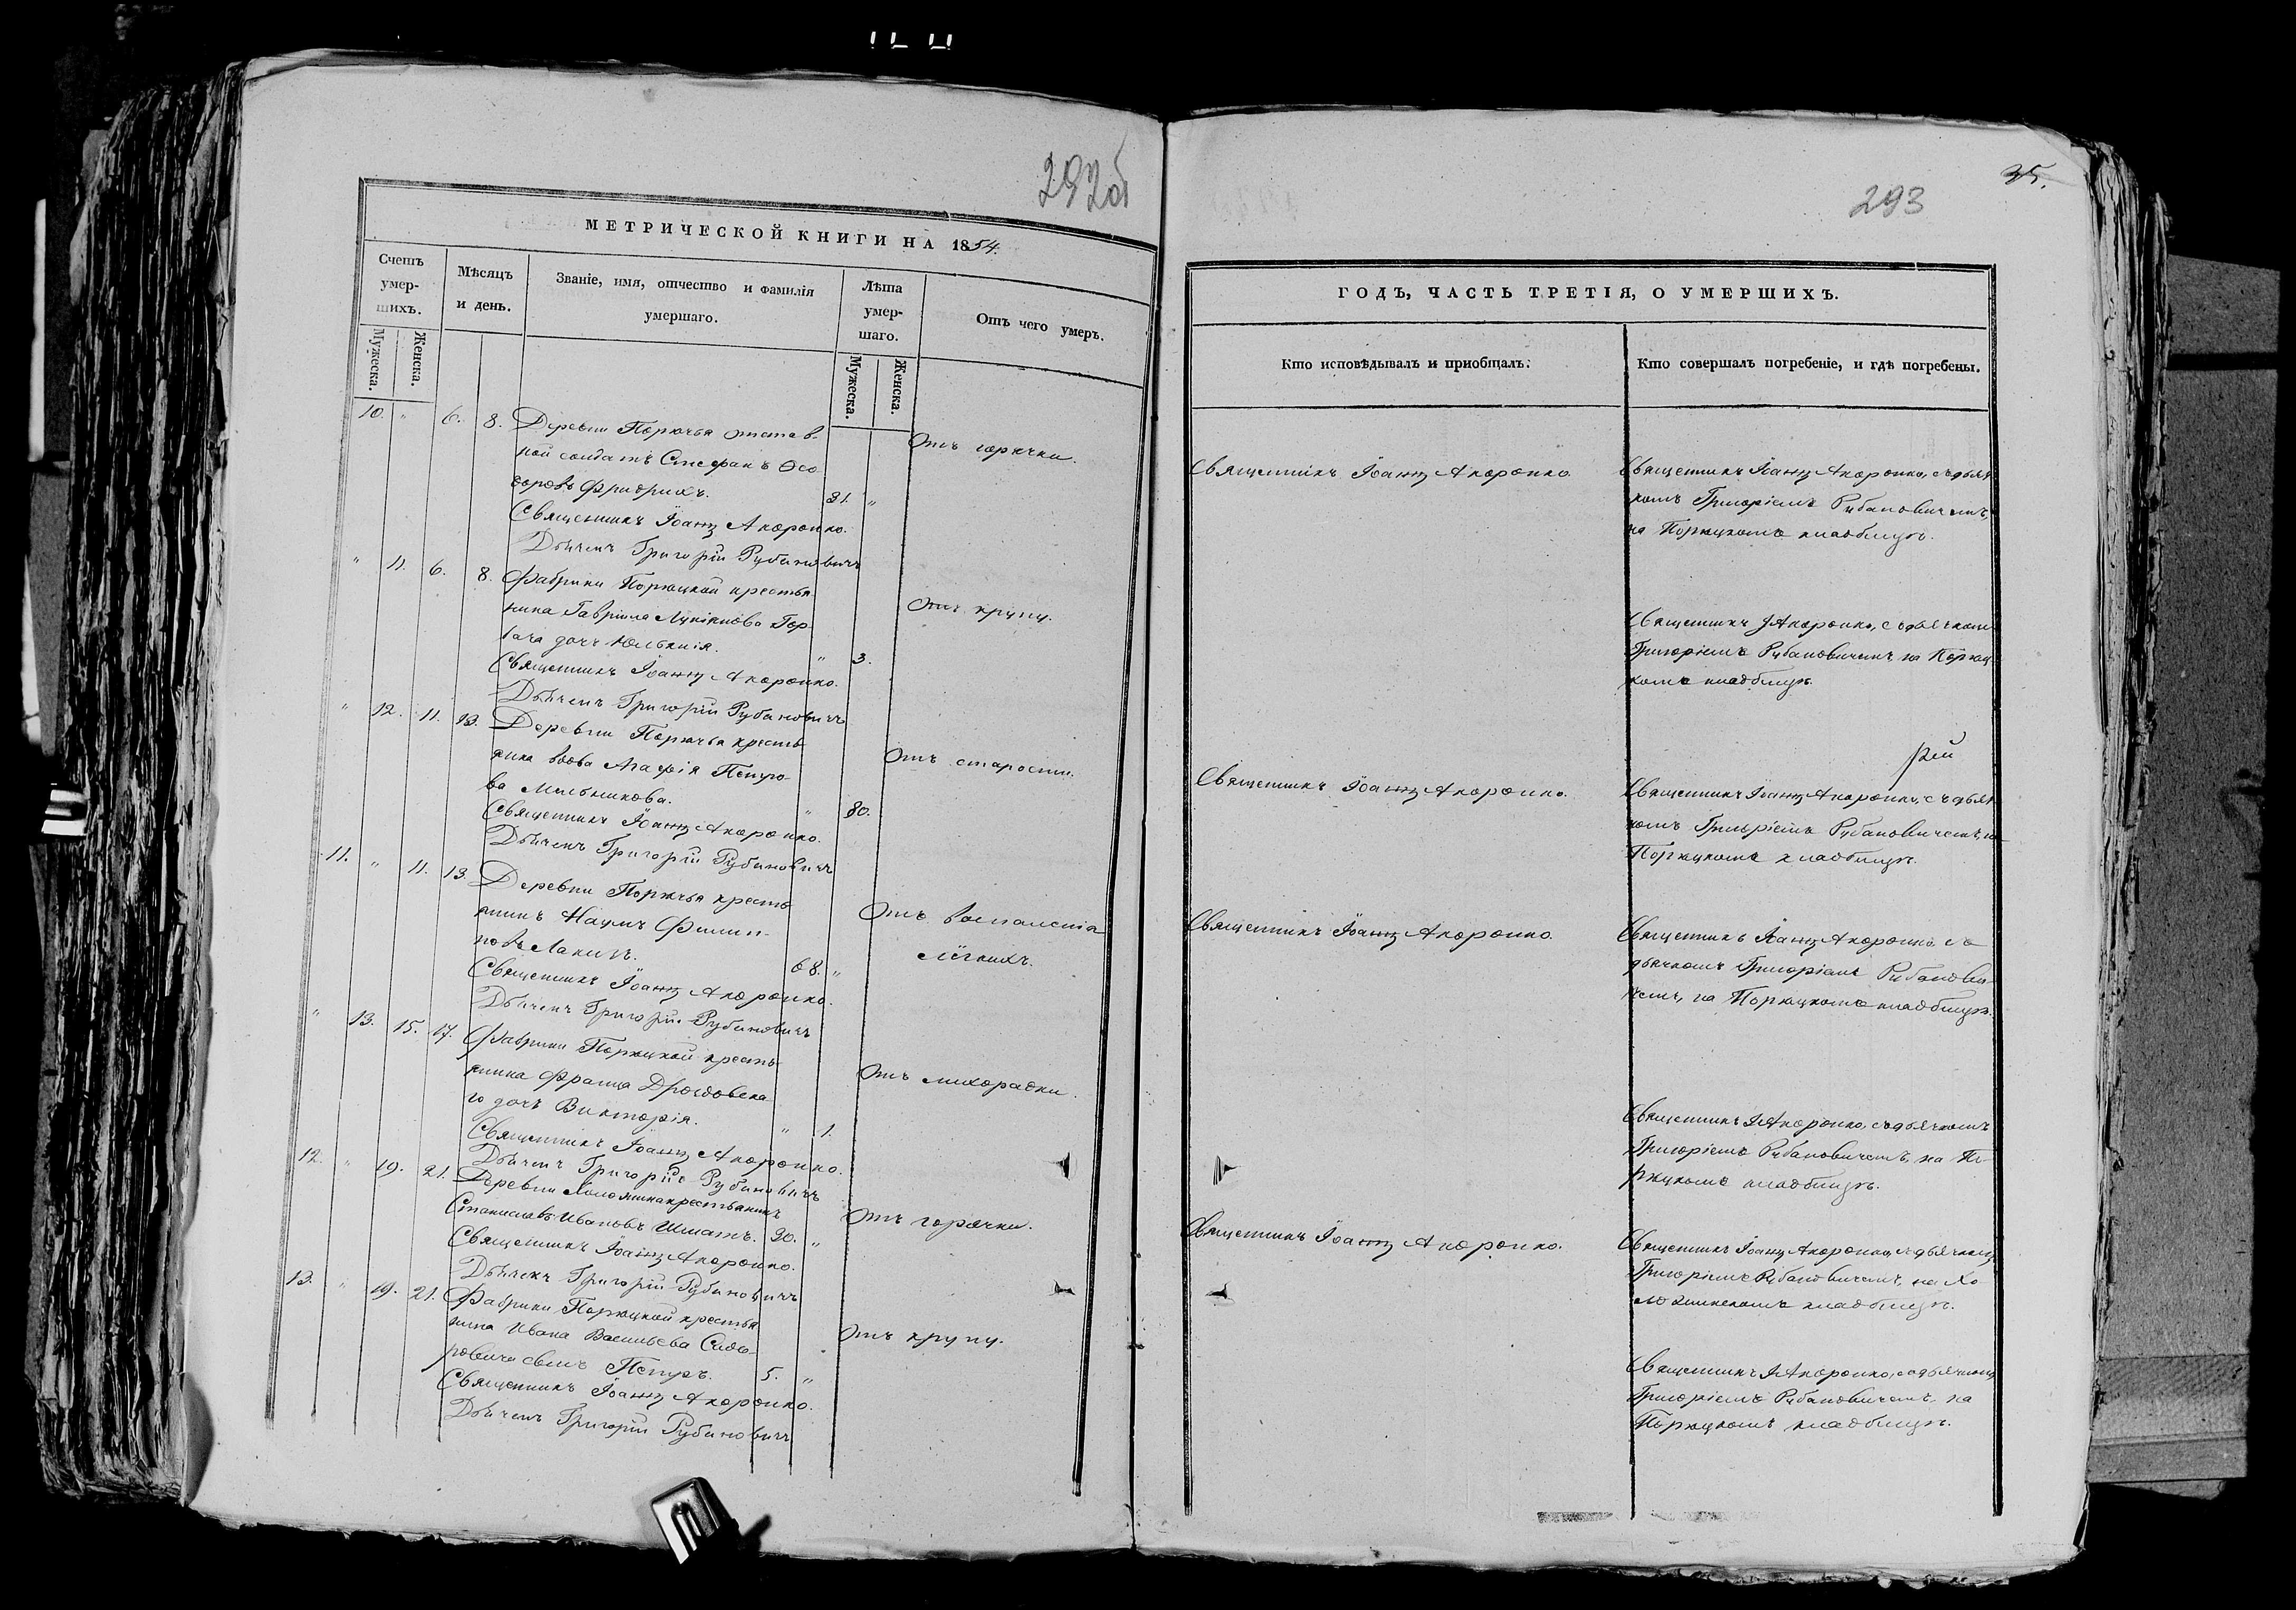 292об
МЕТРИЧЕСКОЙ КНИГИ НА 1854.
Счетъ умер-шихъ.
Мѣсяцъ и день.
Званіе, имя, отчество и фамилія умершаго.
Лѣта умер-шаго.
Отъ чего умеръ.
Мужеска.
Женска.
Мужеска.
Женска.
10. " 6. 8. Деревни Порѣчья отстав-
ной солдатъ Стефанъ Ѳео-
доровъ Фридрихъ. 31. "
Отъ горячки.
Священникъ Іоаннъ Акоронко.
Дьячекъ Григорій Рубановичъ
" 11. 6. 8. Фабрики Порѣцкой крестья
нина Гавріила Лукіянова Гор-
бача дочь Юліянія. " 3.
Отъ крупу.
Священникъ Іоаннъ Акоронко.
Дьячекъ Григорій Рубановичъ
" 12. 11. 13. Деревни Порѣчья кресть
янка вдова Агафія Петро-
ва Мильникова. " 80.
Отъ старости.
Священникъ Іоаннъ Акоронко.
Дьячекъ Григорій Рубановичъ
11. " 11. 13. Деревни Порѣчья кресть
янинъ Наумъ Филип-
повъ Лакизъ. 68. "
Отъ воспаленія
лёгкихъ.
Священникъ Іоаннъ Акоронко.
Дьячекъ Григорій Рубановичъ
" 13. 15. 17. Фабрики Порѣцкой кресть
янина Франца Дроздовска
го дочь Викторія. " 1.
Отъ лихорадки.
Священникъ Іоаннъ Акоронко.
Дьячекъ Григорій Рубановичъ
12. " 19. 21. Деревни крестьянинъ
Станиславъ Ивановъ Шматъ. 30. "
Отъ горячки.
Священникъ Іоаннъ Акоронко.
Дьячекъ Григорій Рубановичъ
13. " 19. 21. Фабрики Порѣцкой крестья
нина Ивана Васильева Сидо-
ровича сынъ Петръ. 5. "
Отъ крупу.
Священникъ Іоаннъ Акоронко.
Дьячекъ Григорій Рубановичъ
35.
293
ГОДЪ, ЧАСТЬ ТРЕТІЯ, О УМЕРШИХЪ.
Кто исповѣдывалъ и пріобщалъ.
Кто совершалъ погребеніе, и гдѣ погребены.
Священникъ Іоаннъ Акоронко
Священникъ Іоаннъ Акоронко, съ дьяч
комъ Григоріемъ Рубановичемъ,
на Порѣцкомъ кладбищѣ.
Священникъ І Акоронко, съ дьячкомъ
Григоріемъ Рубановичемъ на Порѣц
комъ кладбищѣ.
Священникъ Іоаннъ Акоронко.
Священникъ Іоаннъ Акоронко, съ дьяч
комъ Григоріемъ Рубановичемъ, на
Порѣцкомъ кладбищѣ.
Священникъ Іоаннъ Акоронко.
Священникъ Іоаннъ Акоронко съ
дьячкомъ Григоріемъ Рубанови
чемъ, на Порѣцкомъ кладбищѣ.
Священникъ І Акоронко, съ дьячкомъ
Григоріемъ Рубановичемъ, на По-
рѣцкомъ кладбищѣ.
Священникъ Іоаннъ Акоронко.
Священникъ Іоаннъ Акоронко, съ дьячкомъ
Григоріемъ Рубановичемъ, на
кладбищѣ.
Священникъ І Акоронко, съ дьячкомъ
Григоріемъ Рубановичемъ, на
Порѣцкомъ кладбищѣ.